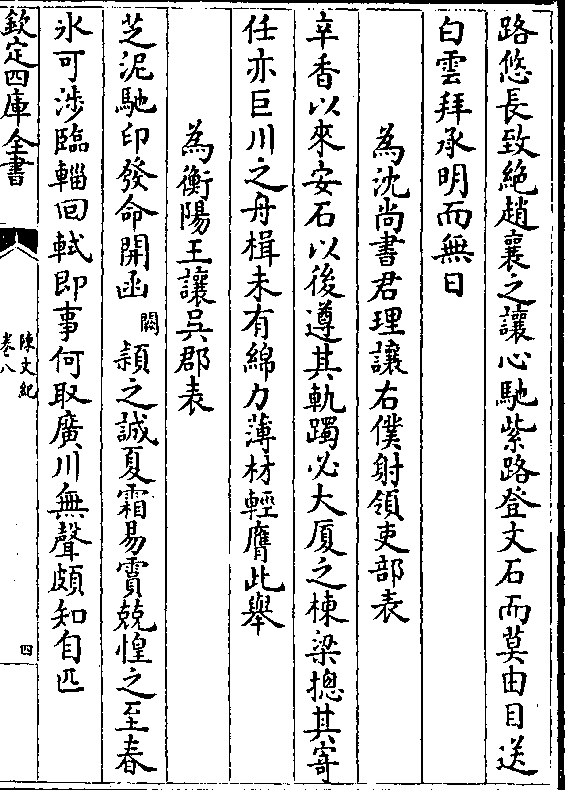 路悠長致絕趙襄之讓心馳紫路登文石而莫由目送
白雲拜承明而無日
為沈尚書君理讓右僕射領吏部表
卒香以來安石以後遵其軌躅必大厦之棟梁摠其寄
任亦巨川之舟楫未有綿力薄材輕膺此舉
為衡陽王讓吳郡表
芝泥馳印發命開函闕潁之誠夏霜易霣兢惶之至春
氷可渉臨轓回軾即事何取廣川無聲頗知自匹
欽定四庫全書
陳文紀
卷八
四